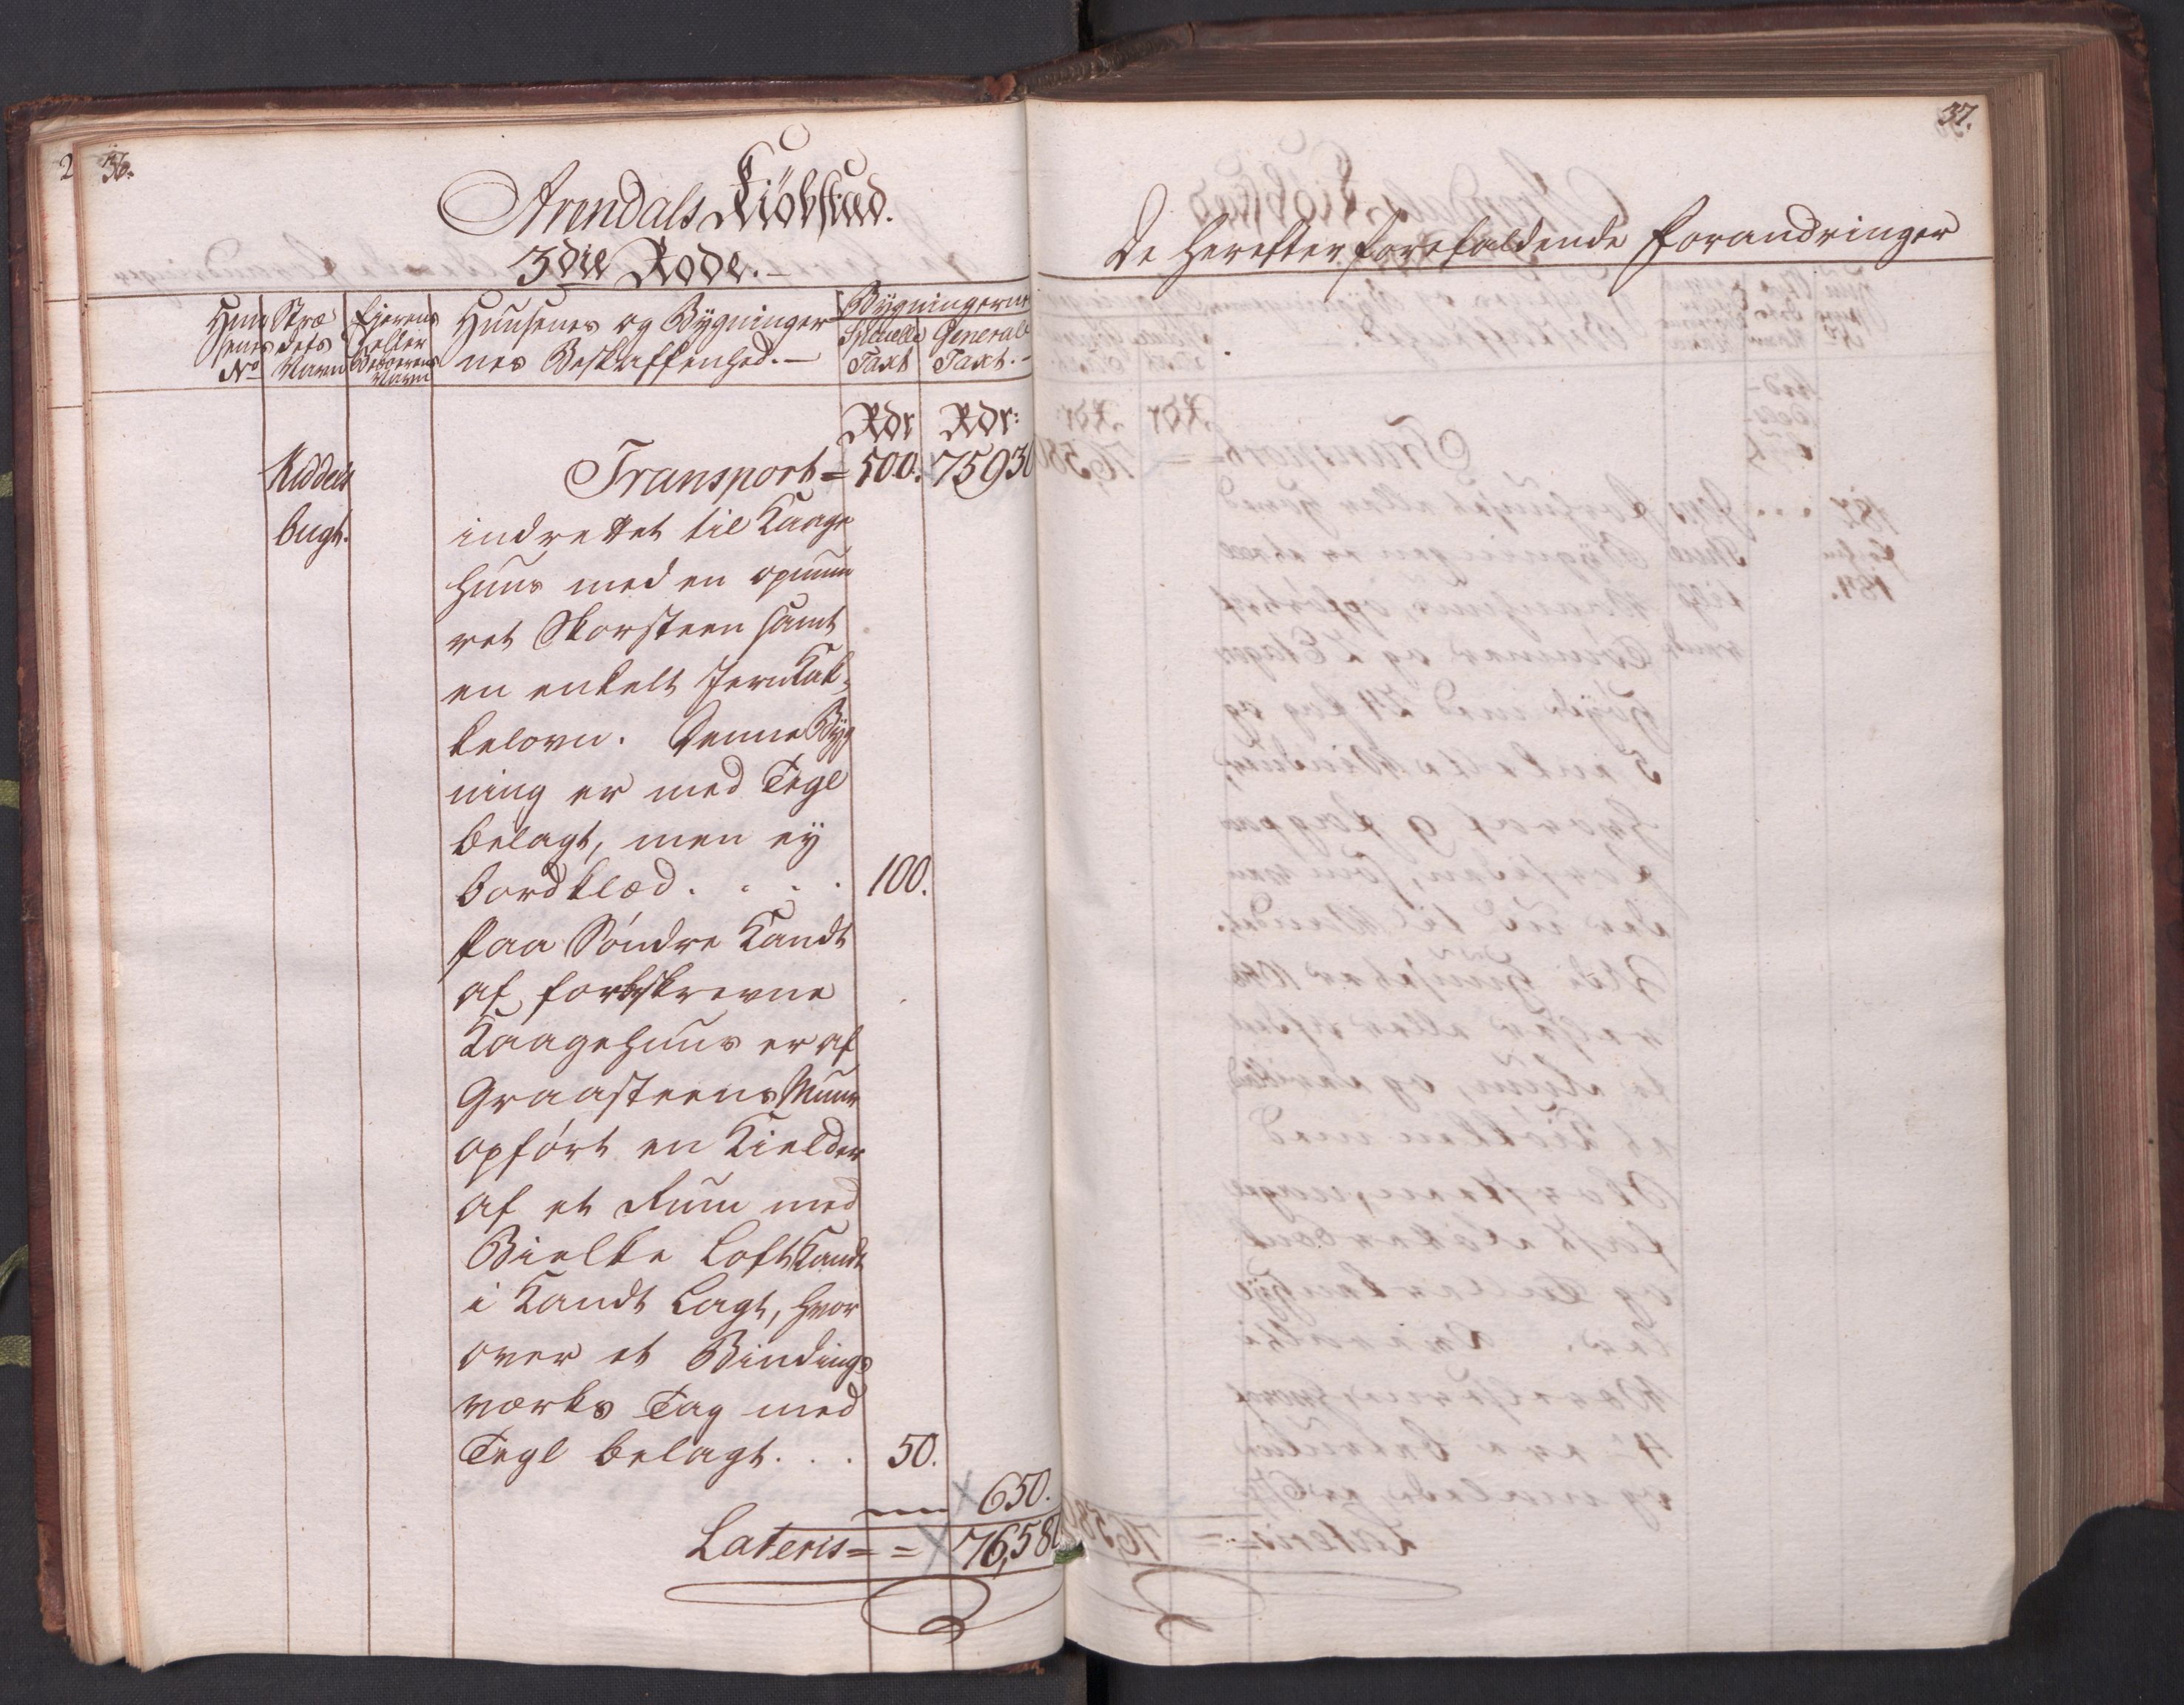 36.
Arendals Kiöbstad.
3die Rode.-
Huu
senes
No
Stræ
dets
Navn
Ejerens
eller
Beboerens
Navn
Huusenes og Bygninger
nes Beskaffenhed.-
Bygningernes
Specielle
Taxt
Generale
Taxt.-
Rdr Rdr:
Kiddels Transport = 500. 75930
bugt. indrettet til Kaage
huus med en opmuu
ret Skorsteen samt
en enkelt Jernkak-
kelovn. Denne Byg
ning er med Tegl
belagt, men ey
bordklæd. . . . 100.
Paa Söndre Kandt
af forbeskrevne
Kaagehuus er af
Graasteens Muur
opfört en Kielder
af et Rum med
Bielke Loft Kandt
i Kandt lagt, hvor
over et Bindings
værks Tag med
Tegl belagt. . . 50.
650.
Lateris = = 76,580
37.
De herefter forefaldende Forandringer